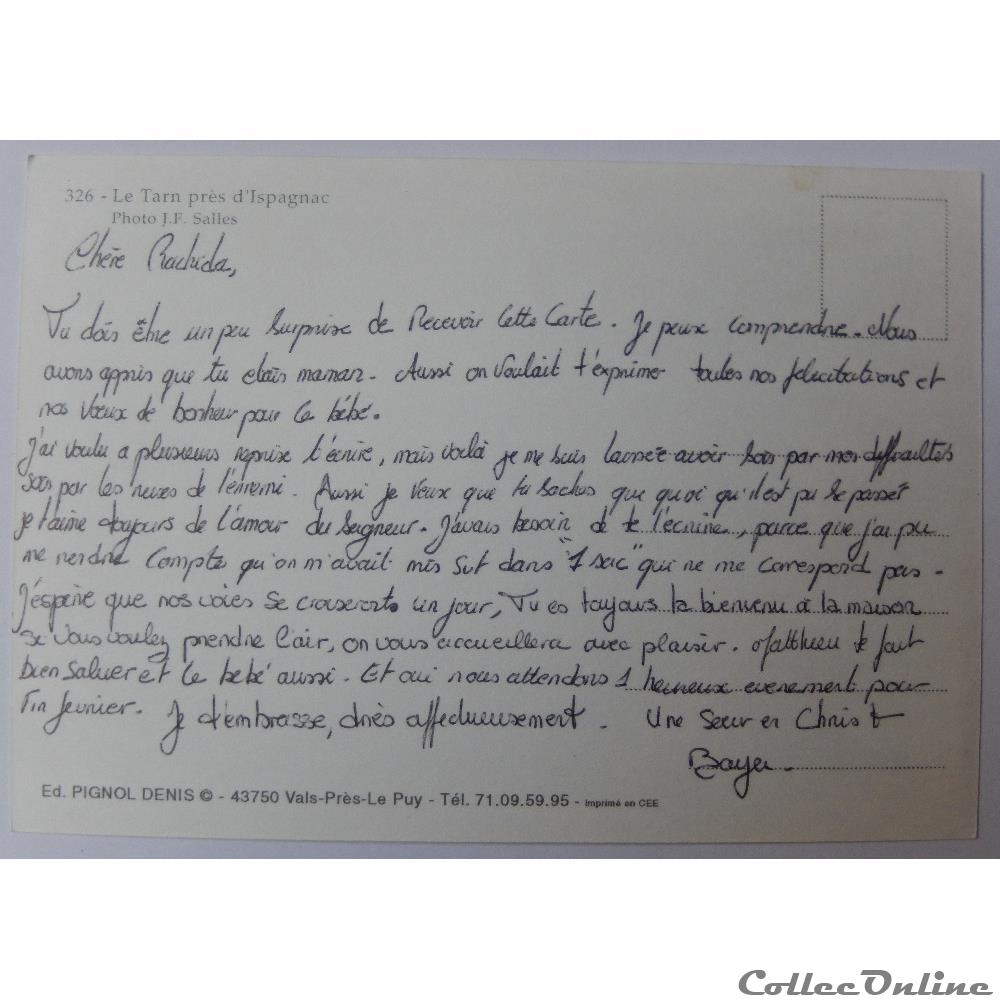 326 - Le Tarn près d'Ispagnac
Photo J.F. Salles
Chère Rachida,
Tu dois être un peu surprise de Recevoir Cette Carte. Je peux comprendre. Nous
avons appris que tu etais maman. Aussi on voulait t'exprimer toutes nos felicitations et
nos vœux de bonheur pour le bébé.
J'ai voulu a plusieurs reprise t'écrire, mais voilà je me suis laissée avoir sois par mes difficultés
sois par les ruses de l'ennemi. Aussi je veux que tu saches que quoi qu'il est pu se passer
je t'aime toujours de l'amour du Seigneur. J'avais besoin de te l'écrire, parce que j'ai pu
me rendre compte qu'on m'avait mis dans "1 sac" qui ne me correspond pas.
J'éspère que nos voies se croiserons un jour, Tu es toujours la bienvenu à la maison
se vous voulez prendre l'air, on vous accueillera avec plaisir. Matthieu te fait
bien saluer et le bébé aussi. Et oui nous attendons 1 heureux evenement pour
Fin fevrier. Je t'embrasse, très affectueusement. Une Sœur en Christ
Baya.
Ed. PIGNOL DENIS © - 43750 Vals-Près-Le Puy - Tél. 71.09.59.95 - imprimé en CEE
CollecOnline